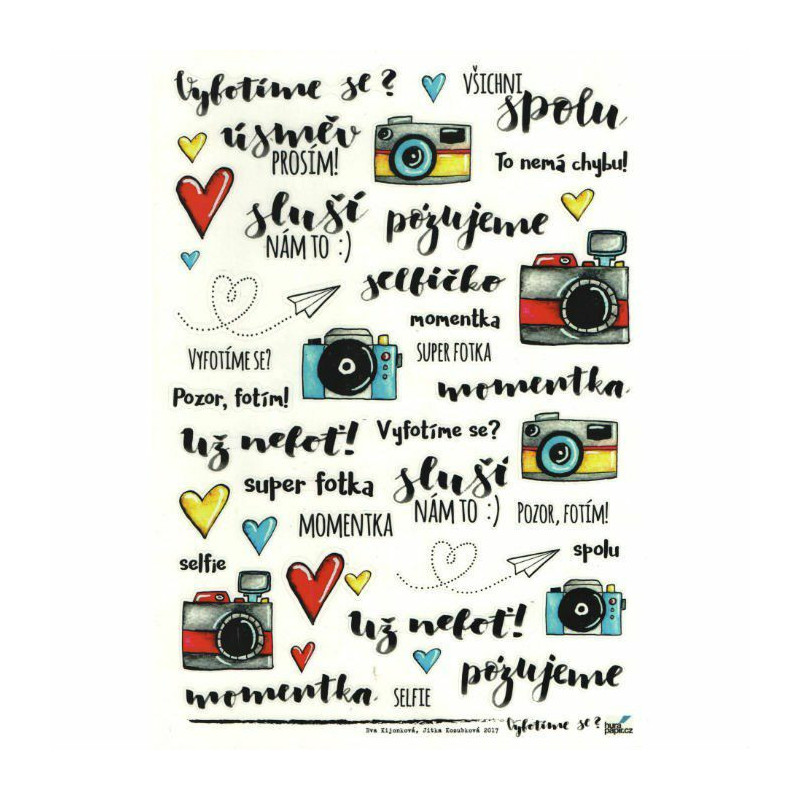 Vyfotíme se?
VŠICHNI
spolu
úsměv
PROSÍM!
To nemá chybu!
sluší
NÁM TO :)
pózujeme
selfíčko
momentka
VYFOTÍME SE?
SUPER FOTKA
Pozor, fotím!
momentka
Už nefoť!
Vyfotíme se?
super fotka
sluší
NÁM TO :)
MOMENTKA
POZOR, FOTÍM!
selfie
spolu
Už nefoť!
pózujeme
momentka
SELFIE
Vyfotíme se?
hura
papir.cz
Eva Kijonková, Jitka Kozubková 2017